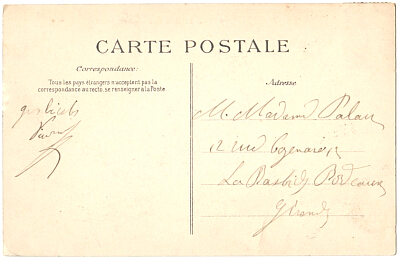 CARTE POSTALE
Correspondance:
Tous les pays étrangers n'acceptent pas la
correspondance au recto, se renseigner à la Poste
Adresse
M. Madame Palau
12 rue
La Bastide Bordeaux
Gironde